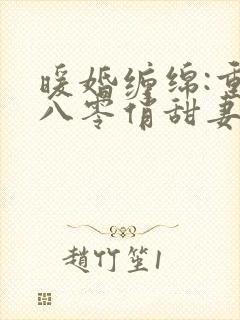 暖婚缠绵:重
八零俏甜妻
趙竹笙1